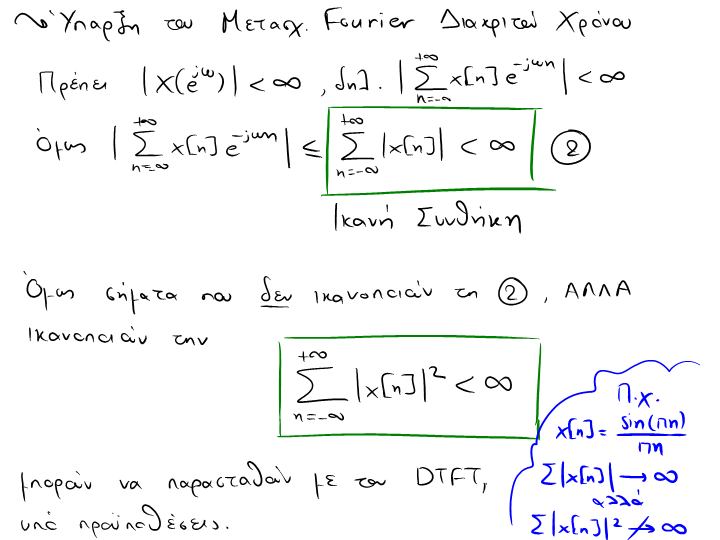 Ύπαρξη του Μετασχ. Fourier Διακριτού Χρόνου
Πρέπει |X(e^{jω})| < ∞ , δηλ. |∑_{n=-∞}^{+∞} x[n] e^{-jωn}| < ∞
Όμως |∑_{n=-∞}^{+∞} x[n] e^{-jωn}| ≤ ∑_{n=-∞}^{+∞} |x[n]| < ∞ ②
Ικανή Συνθήκη
Όμως σήματα που δεν ικανοποιούν τη ②, ΑΛΛΑ
ικανοποιούν την
∑_{n=-∞}^{+∞} |x[n]|² < ∞
μπορούν να παρασταθούν με τον DTFT,
υπό προϋποθέσεις.
Π.χ.
x[n] = sin(πn)/πn
Σ|x[n]| → ∞
αλλά
Σ|x[n]|² ↛ ∞